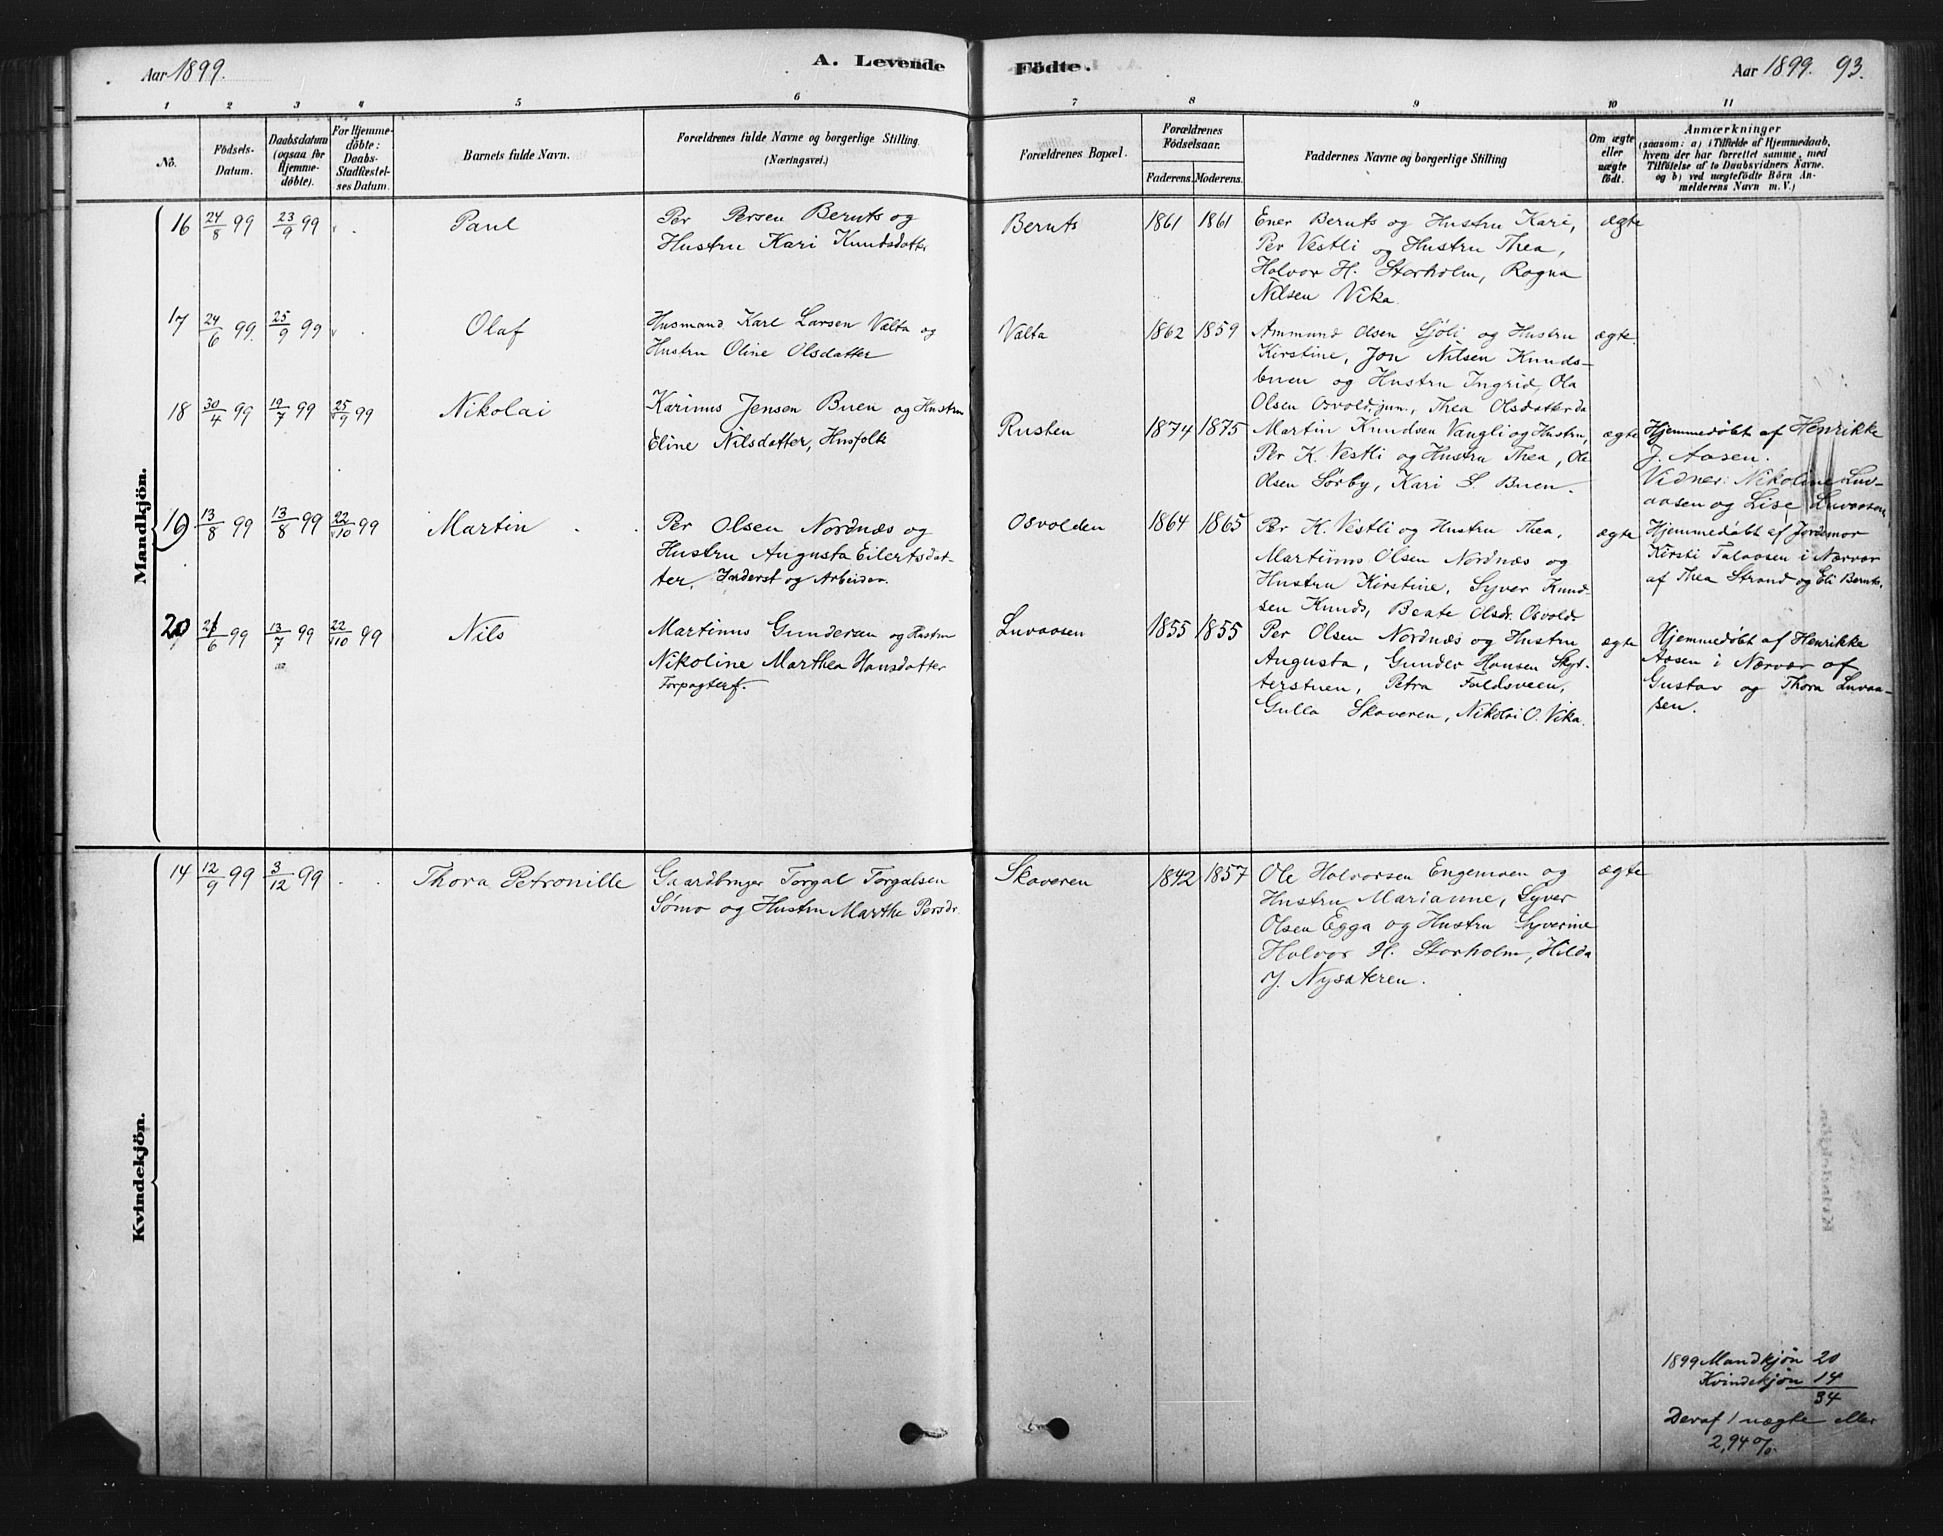 Aar 1899.
A. Levende Födte.
Aar 1899. 93.
1 2 3 4 5 6 7 8 9 10 11
No.
Födsels-
Datum.
Daabsdatum
(ogsaa for
Hjemme-
döbte).
For Hjemme-
döbte:
Daabs-
Stadfæstel-
ses Datum.
Barnets fulde Navn.
Forældrenes fulde Navne og borgerlige Stilling
(Næringsvei.)
Forældrenes Bopæl.
Forældrenes
Födselsaar.
Faderens. Moderens.
Faddernes Navne og borgerlige Stilling
Om ægte
eller
uægte
födt.
Anmærkninger
(saasom: a) i Tilfælde af Hjemmedaab,
hvem der har forrettet samme, med
Tilföielse af to Daabsvidners Navne,
og b) ved uægtefödte Börn An-
melderens Navn m. V.)
Mandkjön.
16 24/8 99 23/9 99 Paul
Per Persen Beruts og
Hustru Kari Knutsdatter
Beruts 1861 1861
Ener Beruts og Hustru Kari,
Per Vestli og Hustru Thea,
Halvor H. Storholm, Ragna
Nilsen Vika.
ægte
17 24/6 99. 25/9 99 Olaf
Husmand Karl Larsen Valta og
Hustru Oline Olsdatter
Valta 1862 1859
Ammund Olsen Sjöli og Hustru
Kirstine, Jon Nilsen Knuds-
buen og Hustru Ingrid, Ola
Olsen Osvold jun., Thea Olsdatter da
ægte.
18 30/4 99 19/7 99 25/9 99 Nikolai
Karinus Jensen Buen og Hustru
Eline Nilsdatter, Husfolk
Rusten 1874 1875
Martin Knudsen Vangli og Hustru,
Per K. Vestli og Hustru Thea, Ole
Olsen Sørby, Kari S. Buen.
ægte
Hjemmedøbt af Henrikke
J. Aasen.
Vidner: Nikoline Luv-
aasen og Lise Luvaasen
19 13/8 99 13/8 99 22/10 99 Martin
Per Olsen Nordnæs og
Hustru Augusta Eilertsdat-
ter, Inderst og Arbeider.
Osvolden 1864 1865
Per K. Vestli og Hustru Thea,
Martinus Olsen Nordnæs og
Hustru Kirstine, Syver Knud-
sen Knuds, Beate Olsdr. Osvold.
ægte
Hjemmedøbt af Jordemor
Kirsti Talaasen i Nærvær
af Thea Strand og Eli Beruts.
20 /6 99 13/7 99 22/10 99 Nils
Martinus Gundersen og Hustru
Nikoline Marthea Hansdatter
Forpagter.
Luvaasen 1855 1855
Per Olsen Nordnæs og Hustru
Augusta, Gunder Hansen Skyt-
terstuen, Petra Faldsveen,
Gulla Skaveren, Nikolai O. Vika.
ægte
Hjemmedøbt af Henrikke
Aasen i Nærvær af
Gustav og Thora Luvaa-
sen.
Kvindekjön.
14 12/9 99 3/12 99 Thora Petronille
Gaardbruger Torgal Torgalsen
Sømo og Hustru Marthe Persdr.
Skaveren 1842 1857
Ole Halvorsen Engemoen og
Hustru Marianne, Syver
Olsen Egga og Hustru Syverine
Halvor H. Storholm, Hilda
J. Nysæteren.
ægte
1899 Mandkjön 20
Kvindekjön 14
34
Deraf 1 uægte eller
2,94 %.